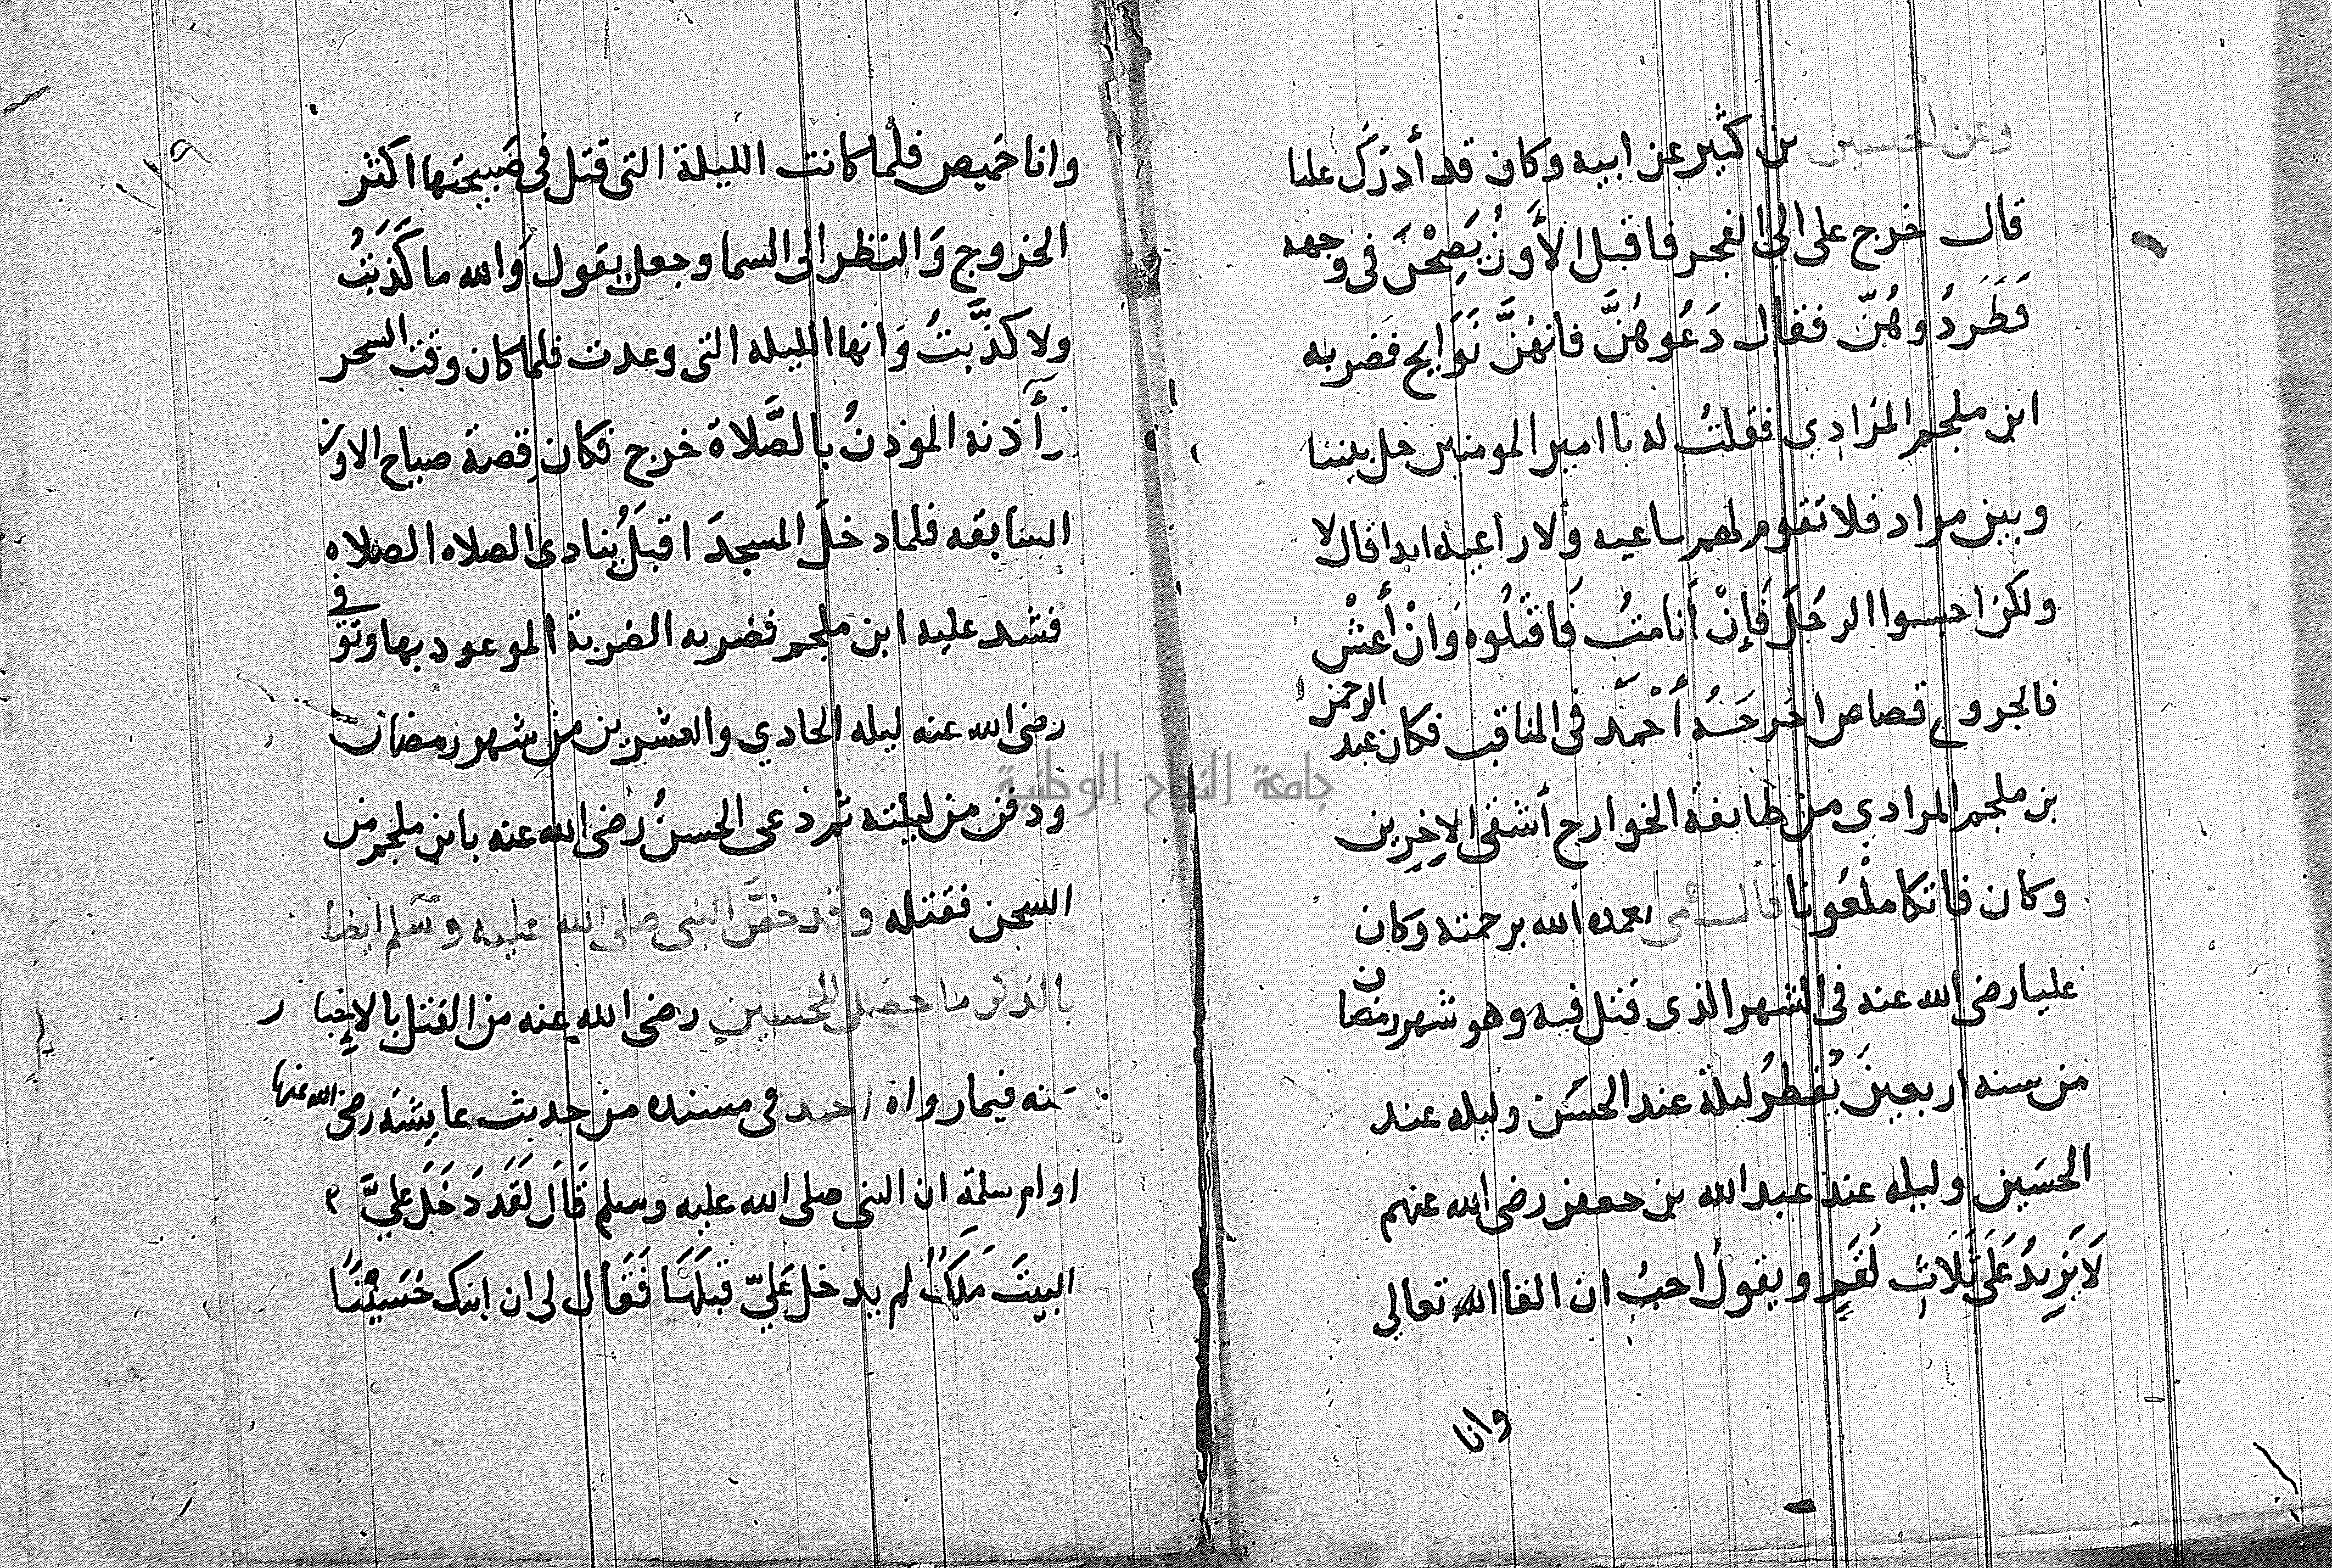 وعن الحسين بن كثير عن ابيه وكان قد أدرَكَ عليا
قال خرج على الى الفجر فاقبل الأَوزُ يَصِحْنَ فى وجهه
فَطَرَدُوهُنّ فقال دَعُوهُنَّ فانهُنَّ نَوَايح فضربه
ابن ملجم المرَادي فقلتُ له يا امير المومنين خل بيننا
وبين مراد فلا تقوم لهم ساعيه ولا راعيه ابدا قال لا
ولكن احبسوا الرجُلَ فَإِنْ أنا مَتُ فَاقتُلُوه وَانْ أَعشْ
فالجروح قصاص اخرجَهُ أحْمَد فى المناقب فكان عبد الرحمن
بن ملجم المرادي من طايفة الخوارج أشقى الاخِرِين
وكان فاتكا ملْعَونا قال تغمده الله برحمته وكان
عليا رضى الله عنه فى الشهر الذى قتل فيه وهو شهر رمضان
من سنه اربعينَ يُفطرُ ليلة عند الحسَن وليله عند
الحسَين وليله عند عبد الله بن جعفر رضى الله عنهم
لَا يَزِيدُ عَلى ثَلَاثِ لُقَمٍ ويقولُ احبُ ان القا الله تعالي
وانا
١١٩
وانا خَميص فلما كانت الليلة التى قتل فى صَبيحتها اكثر
الخروج وَالنظر الى السما وجعل يقول وَالله ما كَذَبَتُ
ولا كذّبتُ وَانها الليله التى وعدت فلما كان وقت السحر
أذنه الموذنُ بالصَّلاة خرج فكان قصة صباح الاوز
السابقه فلما دخلَ المسجدَ اقبلَ يُنادى الصلاه الصلاه
فشد عليه ابن ملجم فضربه الضربة الموعود بها وتوفي
رضى الله عنه ليله الحادي والعشرين من شهر رمضان
ودفن من ليلته ثم دعى الحسنُ رضى الله عنه بابن ملجم من
السجن فقتله وقد خصَّ النبى صلى الله عليه وسلم ايضا
بالذكر ما حصل للحُسَين رضى الله عنه من القتل بالاخبار
عنه فيما رواه احمد فى مسنده من حديث عايشه رضى الله عنها
او ام سلمة ان النبى صلى الله عليه وسلم قَالَ لَقَد دَخَلَ عليَّ
البيتَ مَلَكٌ لم يدخل عَليّ قبلَهَا فَقَال لى ان ابنك حُسَينًا
جامعة النجاح الوطنية